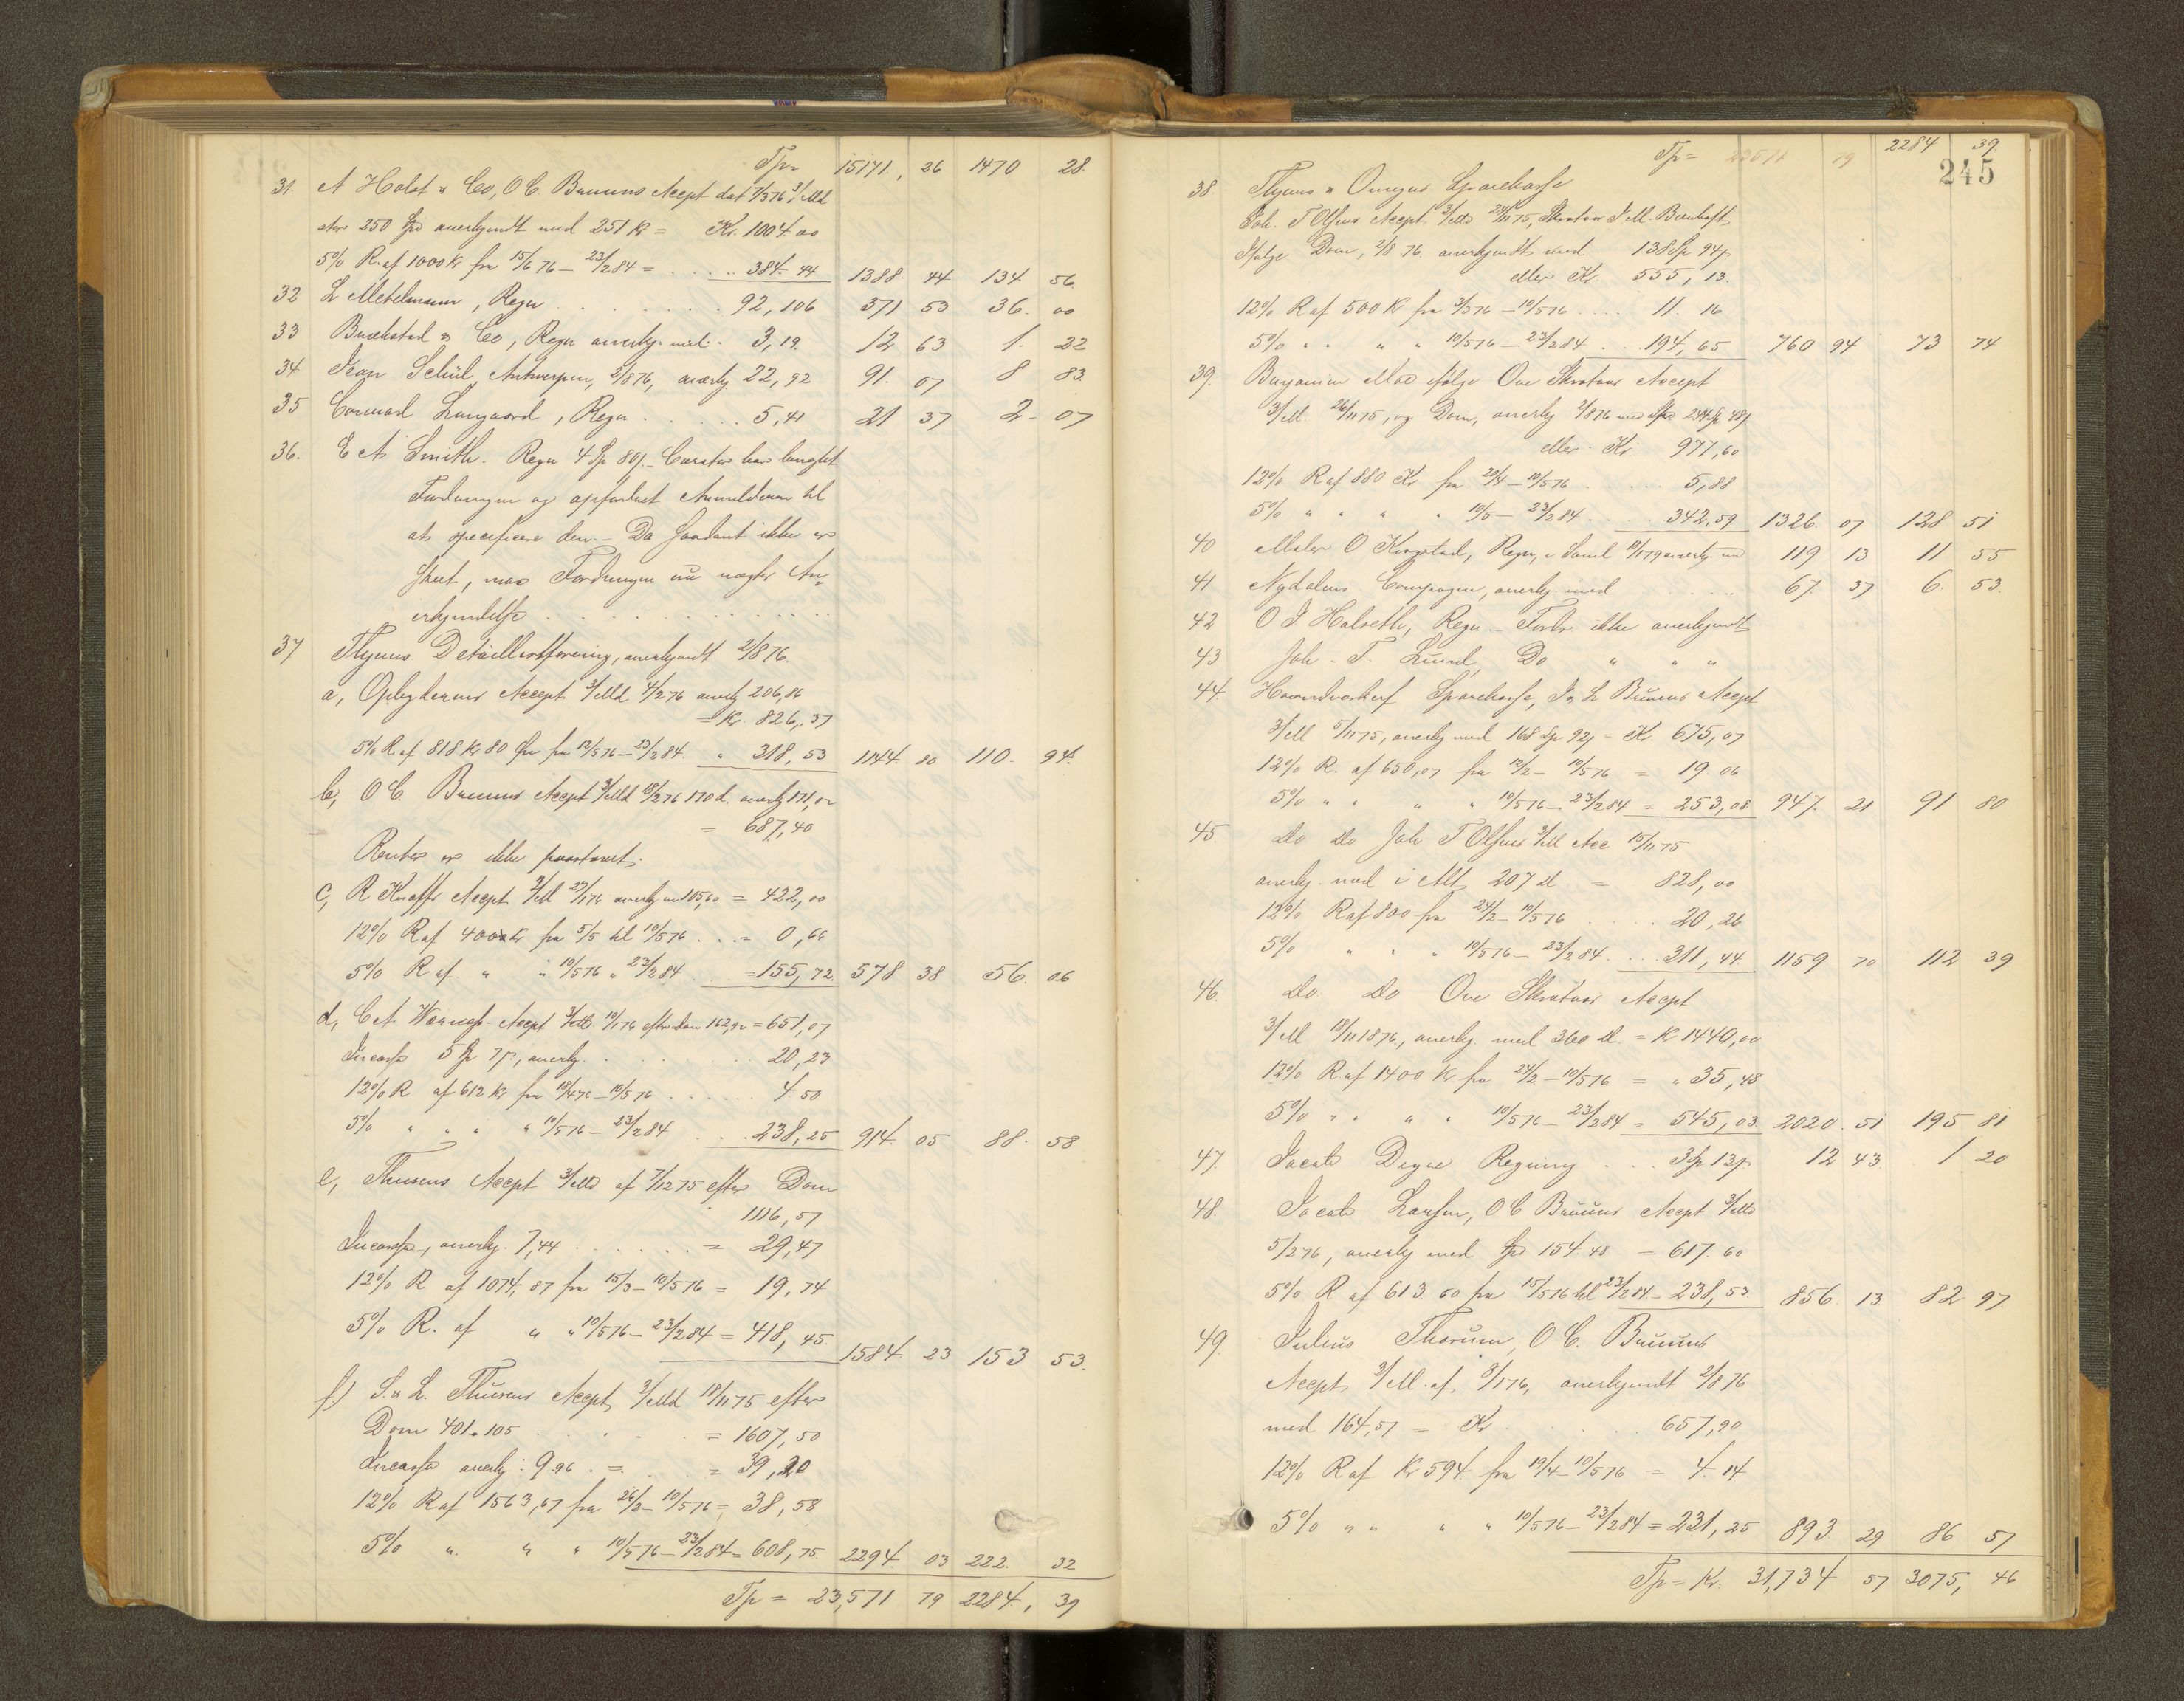 Tp = 15171, 26 1470 28.
31. A Holst & Co, O C. Bruuns Accept dat 7/3 76 3/Md
stor 250 Spd anerkjendt med 251 kr = Kr. 1004.00
5% R. af 1000 Kr fra 15/6 76 – 23/2 84 = . . . . 384.44 1388. 44 134 56.
32 L Metelmann, Regn . . . . . 92,106 371 53 36. 00
33 Buchstad & Co, Regn anerkj. med. 3,19. 12 63 1. 22
34 Jean Schül, Antwerpen, 2/8 76, anerkj 22,92 91. 07 8 83.
35 Conrad Langaard, Regn . . . . . 5,41 21 37 2 - 07
36. E A Smith. Regn 4 Sp 80 /. – Curator har
Fordringen og opfordret Anmelderen til
at specificere den. – Da Saadant ikke er
skeet, maa Fordringen nu nægtes An-
erkjendelse . . . . . . . . . .
37 Thjems Detaillistforening, anerkjendt 2/8 76.
a, Opbyderens Accept 3/Md 4/2 76 anerkj 206,86
= Kr. 826,,37
5% R af 818 Kr 80 Øre fra 12/5 76 – 23/2 84. „ 318,53 1144 80 110. 94.
b, O C. Bruuns Accept 3/Md 18/2 76 170 d. anerkj 171,
= 687,40
Renter er ikke paastaaet.
c, R Knoffs Accept 3/Md 27/1 76 anerkj m 105,60 = 422,00
12% R af 400 Kr fra 5/5 til 10/5 76 . . . = 0,66
5% R af „ „ 10/5 76 „ 23/2 84 . . = 155,72. 578 38 56. 06
d, C A Accept 3/Md 10/1 76 efter Dom 162,92 = 651,07
Incasso 5 Sp 7 p, anerkj . . . 20,23
12% R af 612 Kr fra 18/4 76 – 10/5 76 . . . . . 4 50
5% „ „ „ „ 10/5 76 – 23/2 84 . . . 238,25 914. 05 88. 58
e, Thuesens Accept 3/Md af 7/12 75 efter Dom
1116,57
Incasso, anerkj. 7,44 . . . . . = 29,47
12% R af 1074,87 fra 15/3 – 10/5 76 = 19,74
5% R. af „ „ 10/5 76 – 23/2 84 = 418,45. 1584 23 153 53.
f.) S. & L. Thuesens Accept, 3/Md 18/11 75 efter
Dom 401 „ 105 . . . . = 1607,50
Incasso anerkj: 9.96 . = . = 39,20
12% R af 1563,67 fra 26/2 – 10/5 76 = 38,58
5% „ „ „ 10/5 76 – 23/2 84 = 608,75. 2294. 03 222. 32
Tp = 23,571 79 2284, 39
Tp = 23571 79 2284 39.
245
38. Thjems & Omegns Sparekasse
Joh. T Olsens Accept. 3/Md 24/11 75,
Ifølge Dom, 2/8 76. anerkjendt med 138 Sp 94 p
eller Kr. 555,13.
12% R af 500 Kr fra 3/5 76 – 10/5 76 . . . . 11. 16
5% „ „ „ „ 10/5 76 – 23/2 84 . . . 194,65 760 94 73 74
39. Benjamin Moe ifølge Ove Accept
3/Md 26/11 75, og Dom, anerkj 2/8 76 med Spd 244 Sp 48 p
eller Kr 977,60
12% R af 880 Kr. fra 20/4 – 10/5 76 . . . . . 5,88
5% „ „ „ „ 10/5 – 23/2 84 . . . 342,59 1326. 07 128 51
40 Maler O Krogstad, Regn, i Saml anerkj. med 119 13 11 55
41 Nydalens Compagni, anerkj med . . . . . 67. 37 6. 53.
42 O J Halseth, Regn – Fordr. ikke anerkjendt
43 Joh. T. Lund, Do „ „ „
44. Sparekasse, Bruuns Accept
3/Md 5/11 75, anerkj med 168 Sp 92 p = Kr. 675,07
12% R. af 650,07 fra 12/2 – 10/5 76 = 19.06
5% „ „ „ „ 10/5 76 – 23/2 84 = 253,08 947. 21 91 80
45. Do Do Joh T Olsens 3/Md Acc 15/11 75
anerkj. med i Alt 207 d = 828,00
12% R af 800 fra 24/2 – 10/5 76 . . . . 20,26
5% „ „ „ 10/5 76 – 23/2 84 . . . 311,44. 1159 70 112 39
46. Do Do Ove Accept
3/Md 18/11 1876, anerkj. med 360 d. = K 1440,00
12% R af 1400 Kr fra 24/2 – 10/5 76 = „ 35,48
5% „ „ „ „ 10/5 76 – 23/2 84 = 545,03. 2020. 51 195 81
47. Jacob Digre Regning . . . 3 Sp 13 p. 12 43 1 20
48. Jacob Larsen, O C Bruuns Accept 3/Md
5/2 76, anerkj med Spd 154.48 = 617.60
5% R af 613.60 fra 15/5 76 til 23/2 84 – 238,53. 856. 13 82 97.
49. Julius Thorum, O C. Bruuns
Accept, 3/Md. af 8/1 76, anerkjendt 2/8 76
med 164,57 = Kr . . . . . 657,90
12% R af Kr 594 fra 19/4 – 10/5 76 = 4.14
5% „ „ „ „ 10/5 76 – 23/2 84 = 231,25 893. 29 86 57
Tp = Kr. 31,734 57 3075, 46